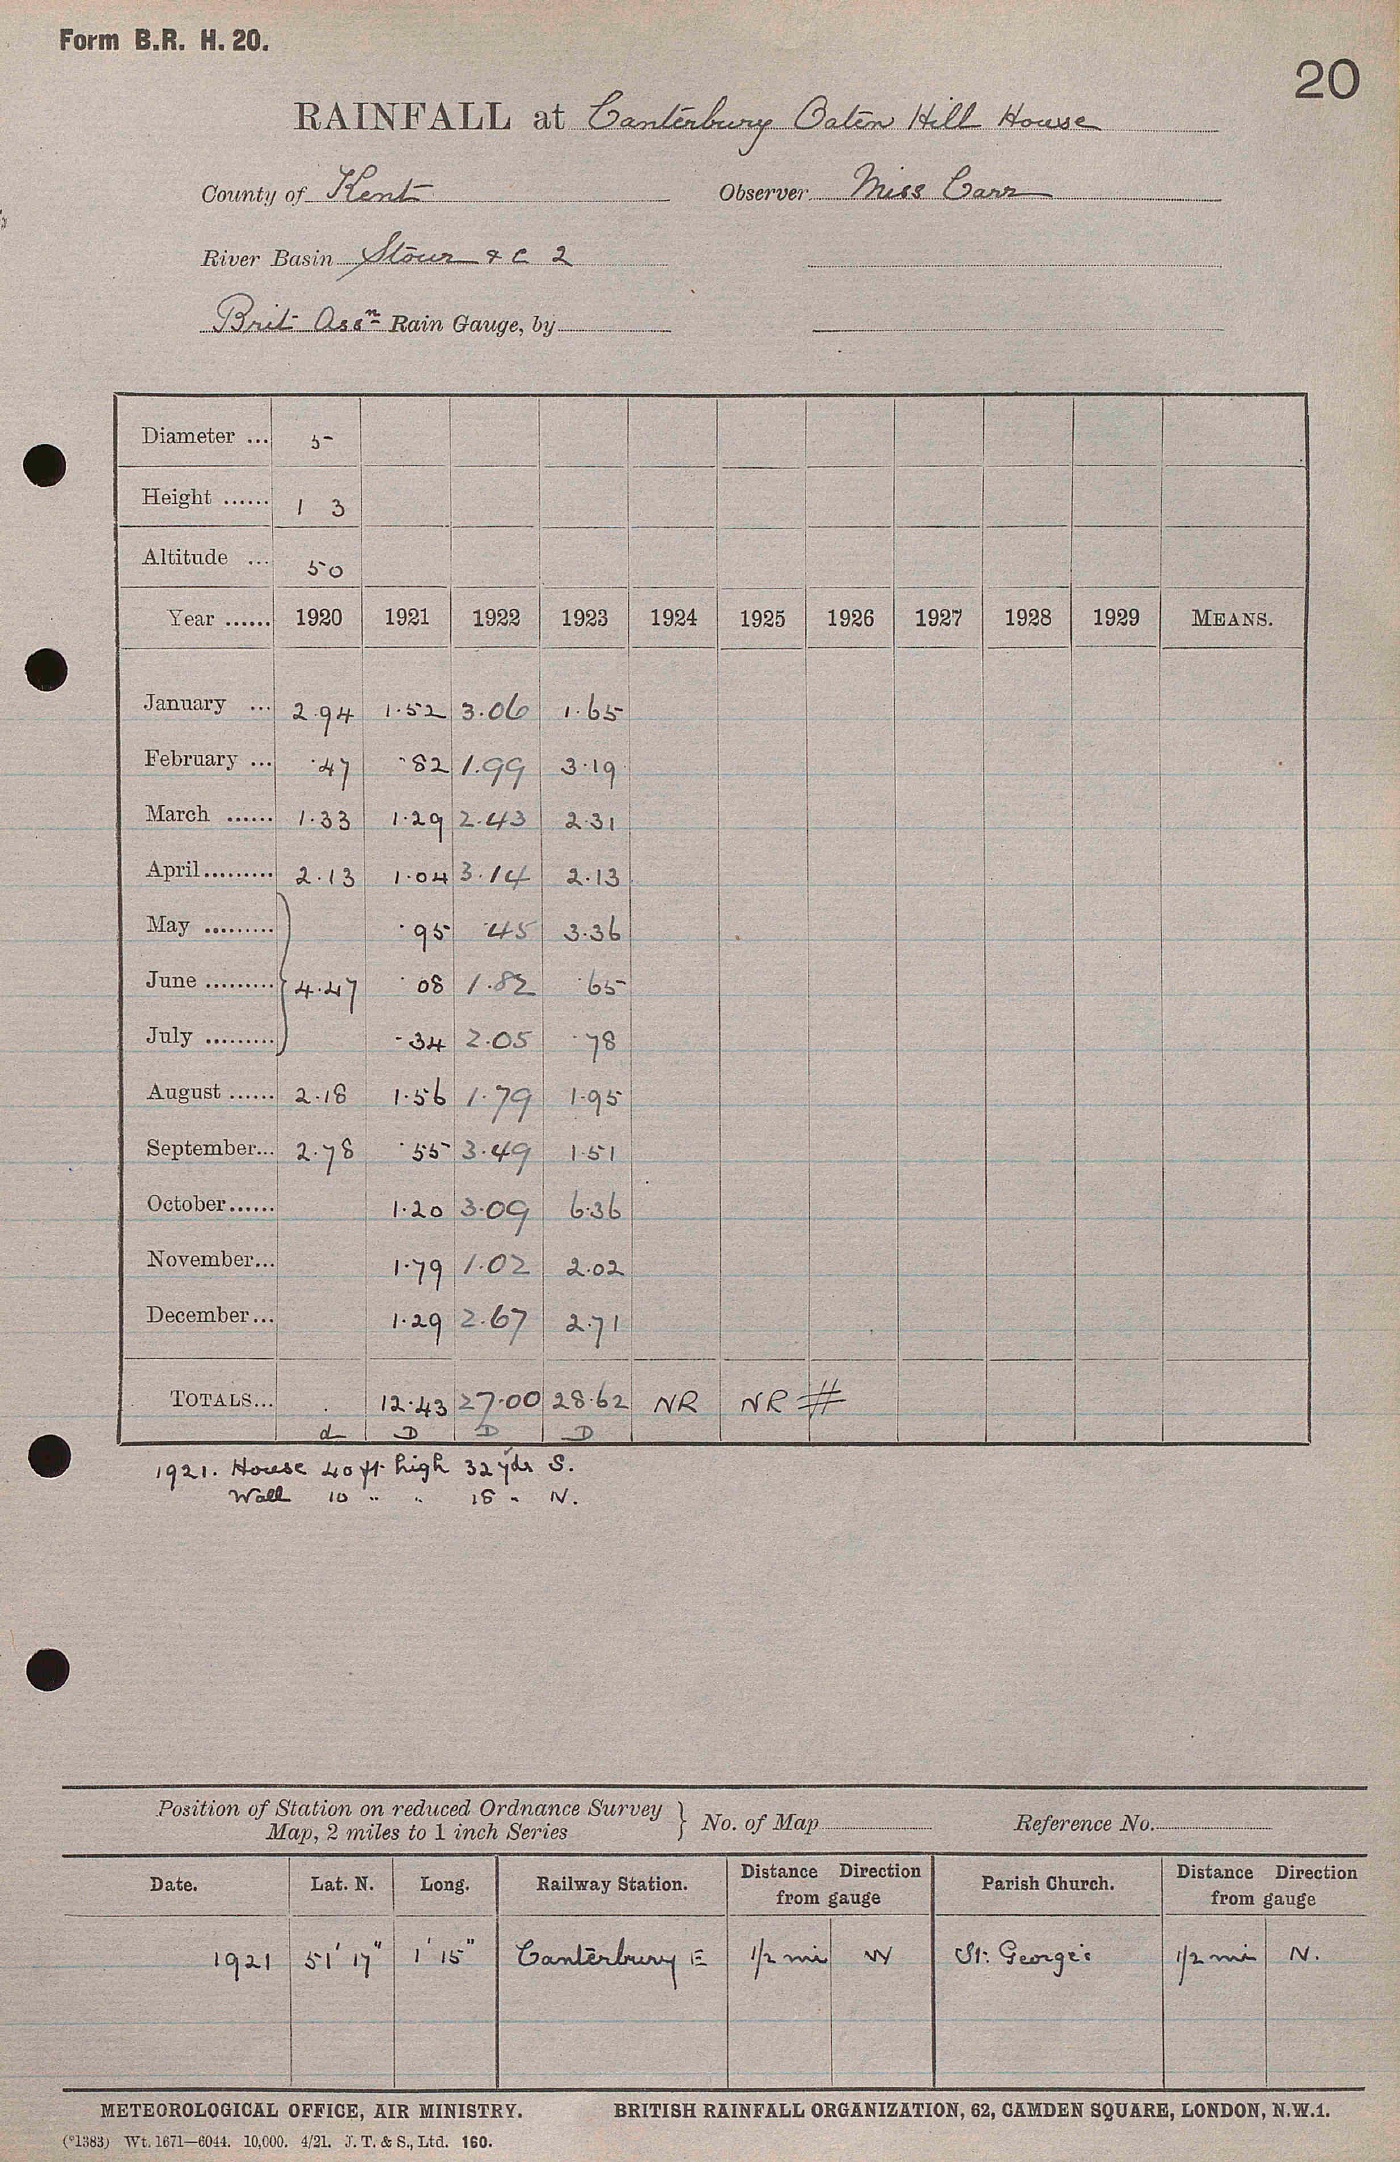 Form B.R. H. 20.
20
RAINFALL at Canterbury Oaten Hill House
County of Kent Observer Miss Carr
River Basin Stour & c 2
Brit Assn Rain Gauge, by
Diameter ... 5
Height ...... 1 3
Altitude ... 50
Year ...... 1920 1921 1922 1923 1924 1925 1926 1927 1928 1929 MEANS.
January ... 2.94 1.52 3.06 1.65
February ... .47 .82 1.99 3.19
March ...... 1.33 1.29 2.43 2.31
April ......... 2.13 1.04 3.14 2.13
May ......... .95 .45 3.36
June ......... } 4.47 .08 1.82 .65
July ......... .34 2.05 .78
August ...... 2.18 1.56 1.79 1.95
September... 2.78 .55 3.49 1.51
October...... 1.20 3.09 6.36
November... 1.79 1.02 2.02
December... 1.29 2.67 2.71
TOTALS... 12.43 27.00 28.62 NR NR #
d D D D
1921. House 40 ft high 32 yds S.
Wall 10 " " 18 " N.
Position of Station on reduced Ordnance Survey
Map, 2 miles to 1 inch Series } No. of Map Reference No.
Date. Lat. N. Long. Railway Station. Distance Direction from gauge Parish Church. Distance Direction from gauge
1921 51' 17" 1' 15" Canterbury E 1/2 mi W St. George's 1/2 mi N.
METEOROLOGICAL OFFICE, AIR MINISTRY. BRITISH RAINFALL ORGANIZATION, 62, CAMDEN SQUARE, LONDON, N.W.1.
(*1383) Wt. 1671—6044. 10,000. 4/21. J. T. & S., Ltd. 160.